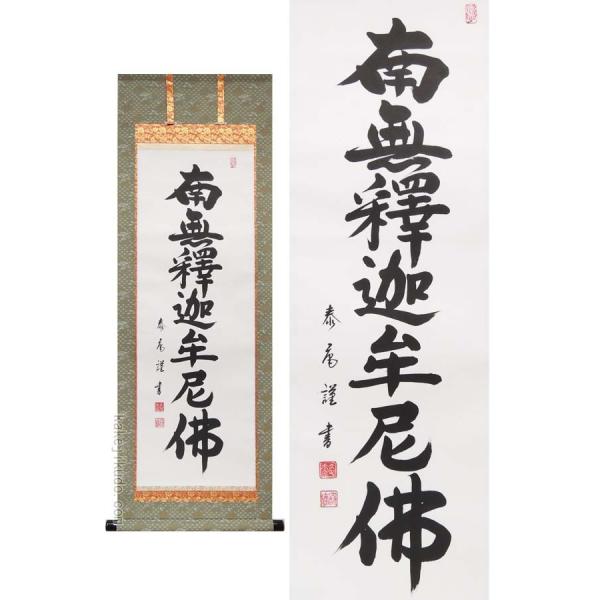 南無釋迦牟尼佛
泰 謹書
kakejikudo.com
南無釋迦牟尼佛
泰 謹書